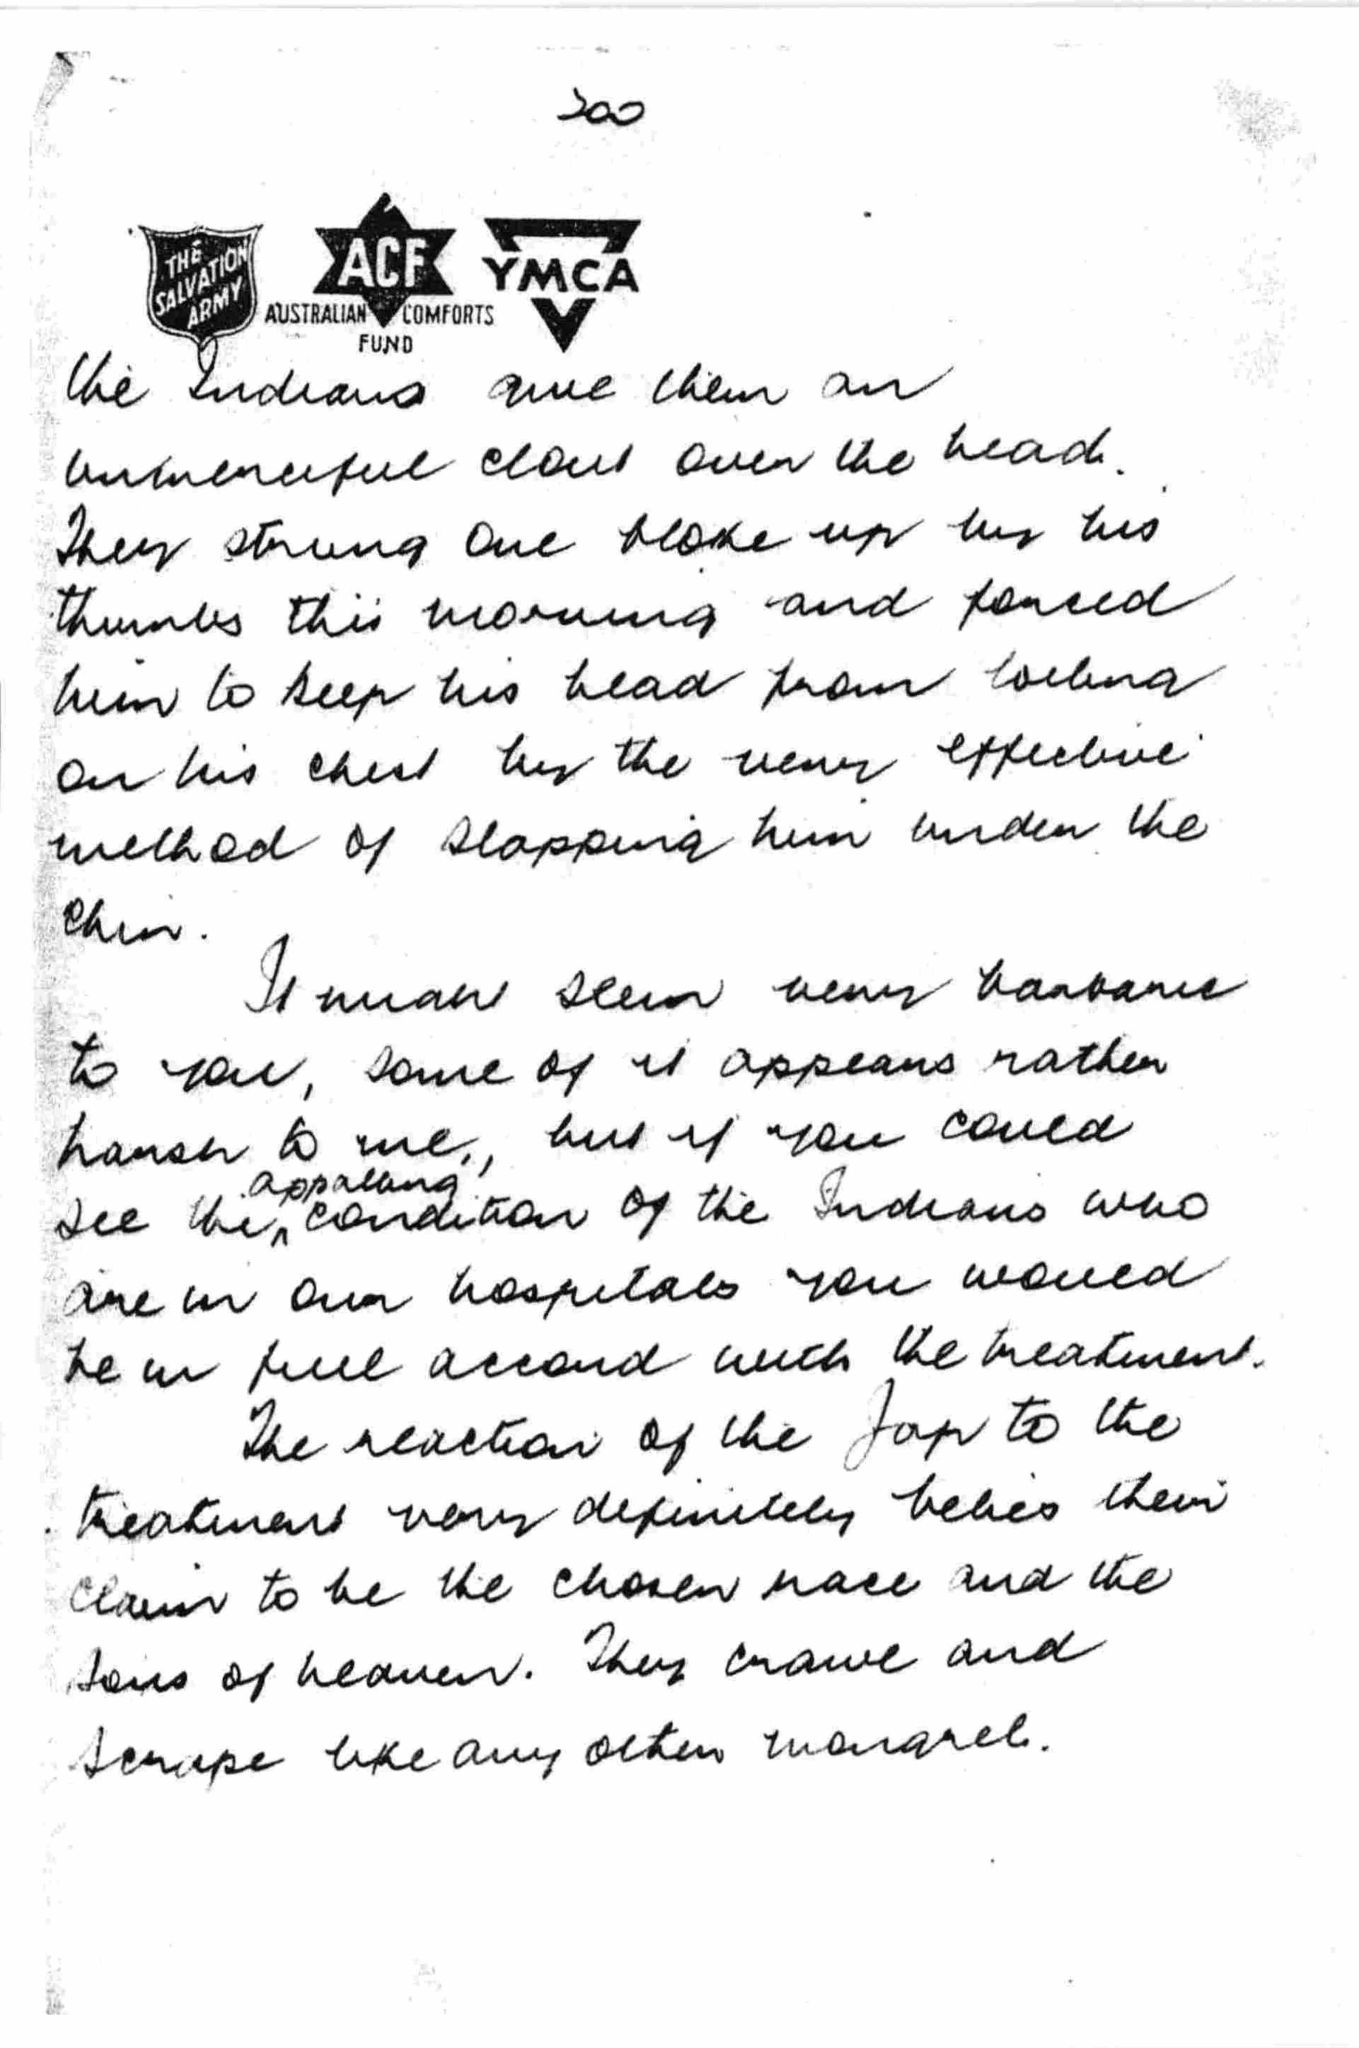 200
THE SALVATION ARMY
ACF
AUSTRALIAN COMFORTS FUND
YMCA
the Indians give them an
unmerciful clout over the head.
They strung one bloke up by his
thumbs this morning and forced
him to keep his head from lolling
on his chest by the very effective
method of slapping him under the
chin.
It might seem very barbaric
to you, some of it appears rather
harsh to me, but if you could
see the appalling condition of the Indians who
are in our hospitals you would
be in full accord with the treatment.
The reaction of the Jap to the
treatment very definitely belies their
claim to be the chosen race and the
sons of heaven. They crawl and
scrape like any other mongrel.